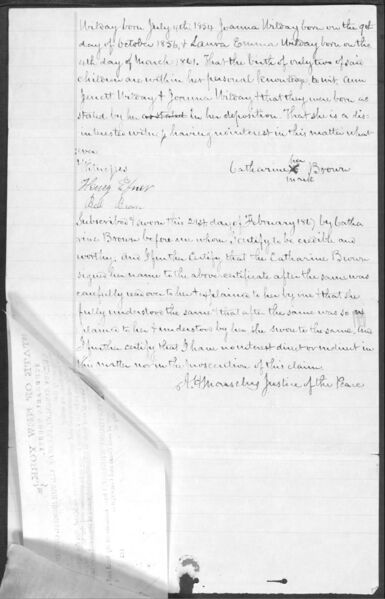 born July 9th 1854 Joanna born on the 9th
day of October 1856, & Laura Emma born on the
4th day of March 1861. That the birth of only two of said
children are within her personal knowledge, to wit, Ann
& Joanna & that they were born as
stated by her as stated in her deposition. That she is a dis-
interested witness having no interest in this matter what
ever.
Witnesses
Catharine her Brown
x
mark
Subscribed & sworn this 21st day of February 1867 by Catha
rine Brown before me whom I certify to be credible and
worthy, and I further certify that the Catharine Brown
signed her name to the above certificate after the same was
carefully read over to her & explained to her by me & that she
fully understood the same & that after the same was so ex
plained to her & understood by her she swore to the same, and
I further certify that I have no interest direct or indirect in
this matter nor in the prosecution of this claim.
Justice of the Peace
STATE OF NEW YORK